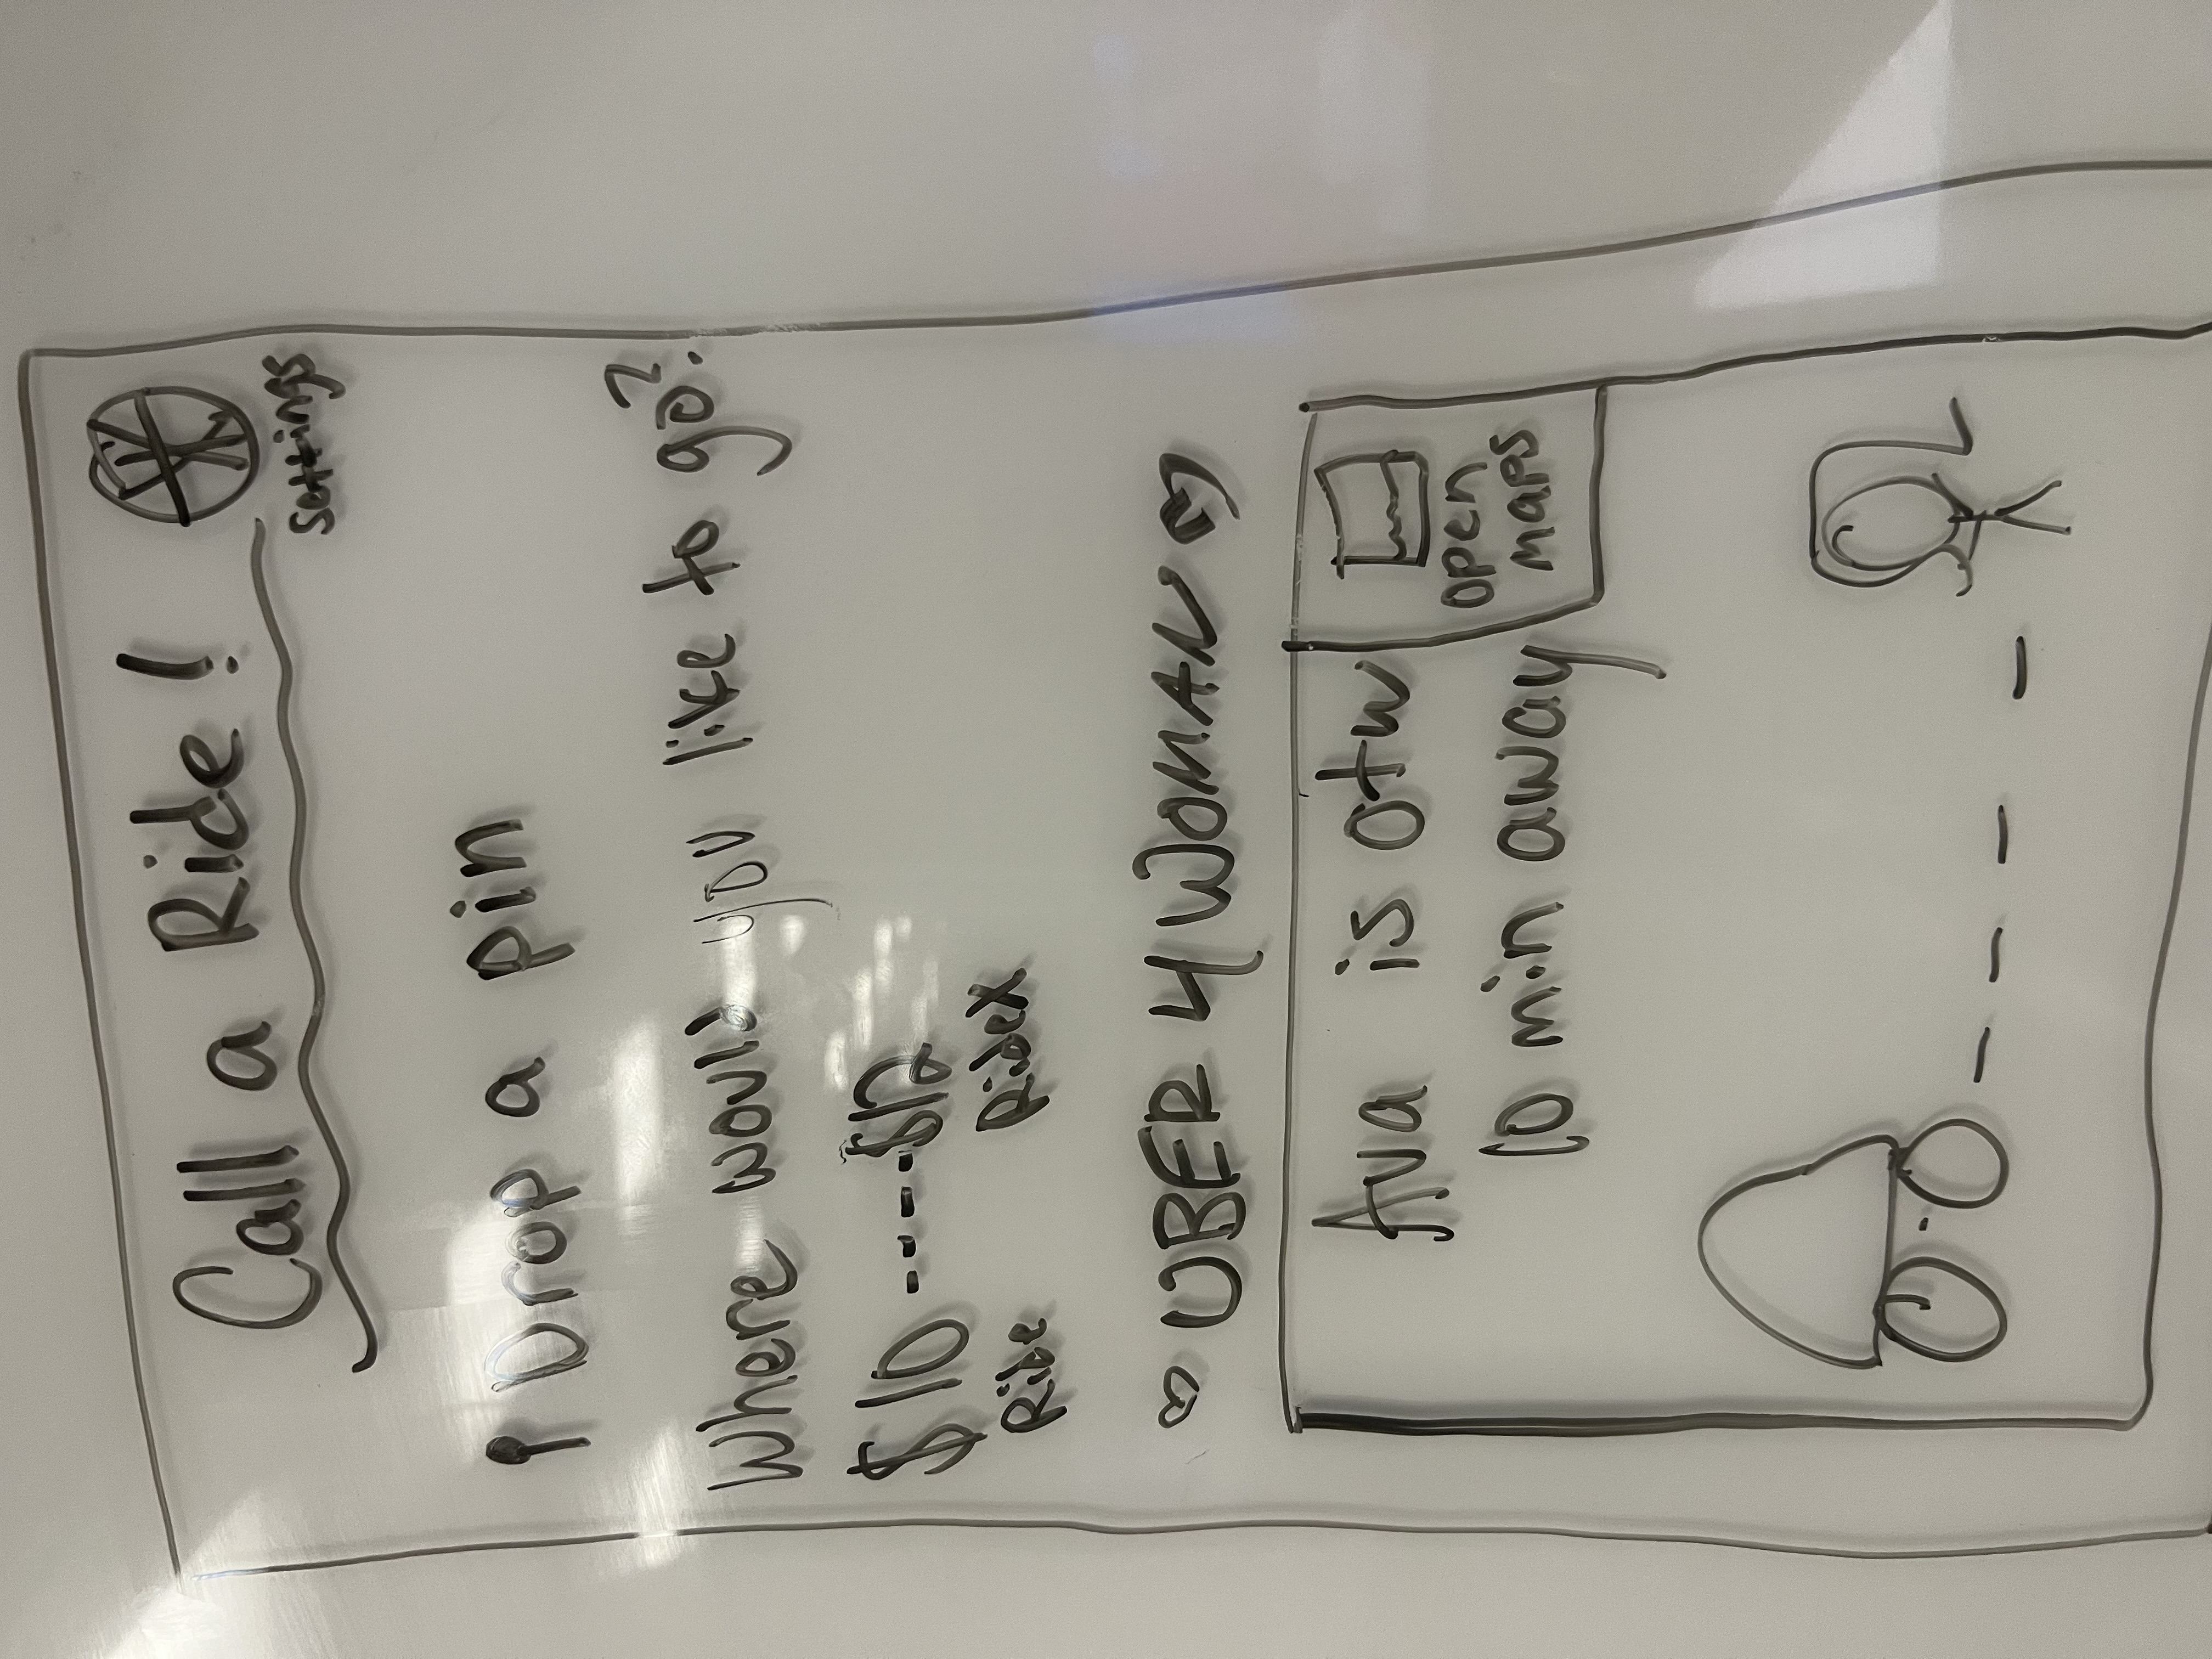 Call a Ride!
settings
Drop a pin
Where would you like to go?
$10 ----$12
Ride RideX
♡ UBER 4 WOMAN ♡
Ava is otw
10 min away
open
maps